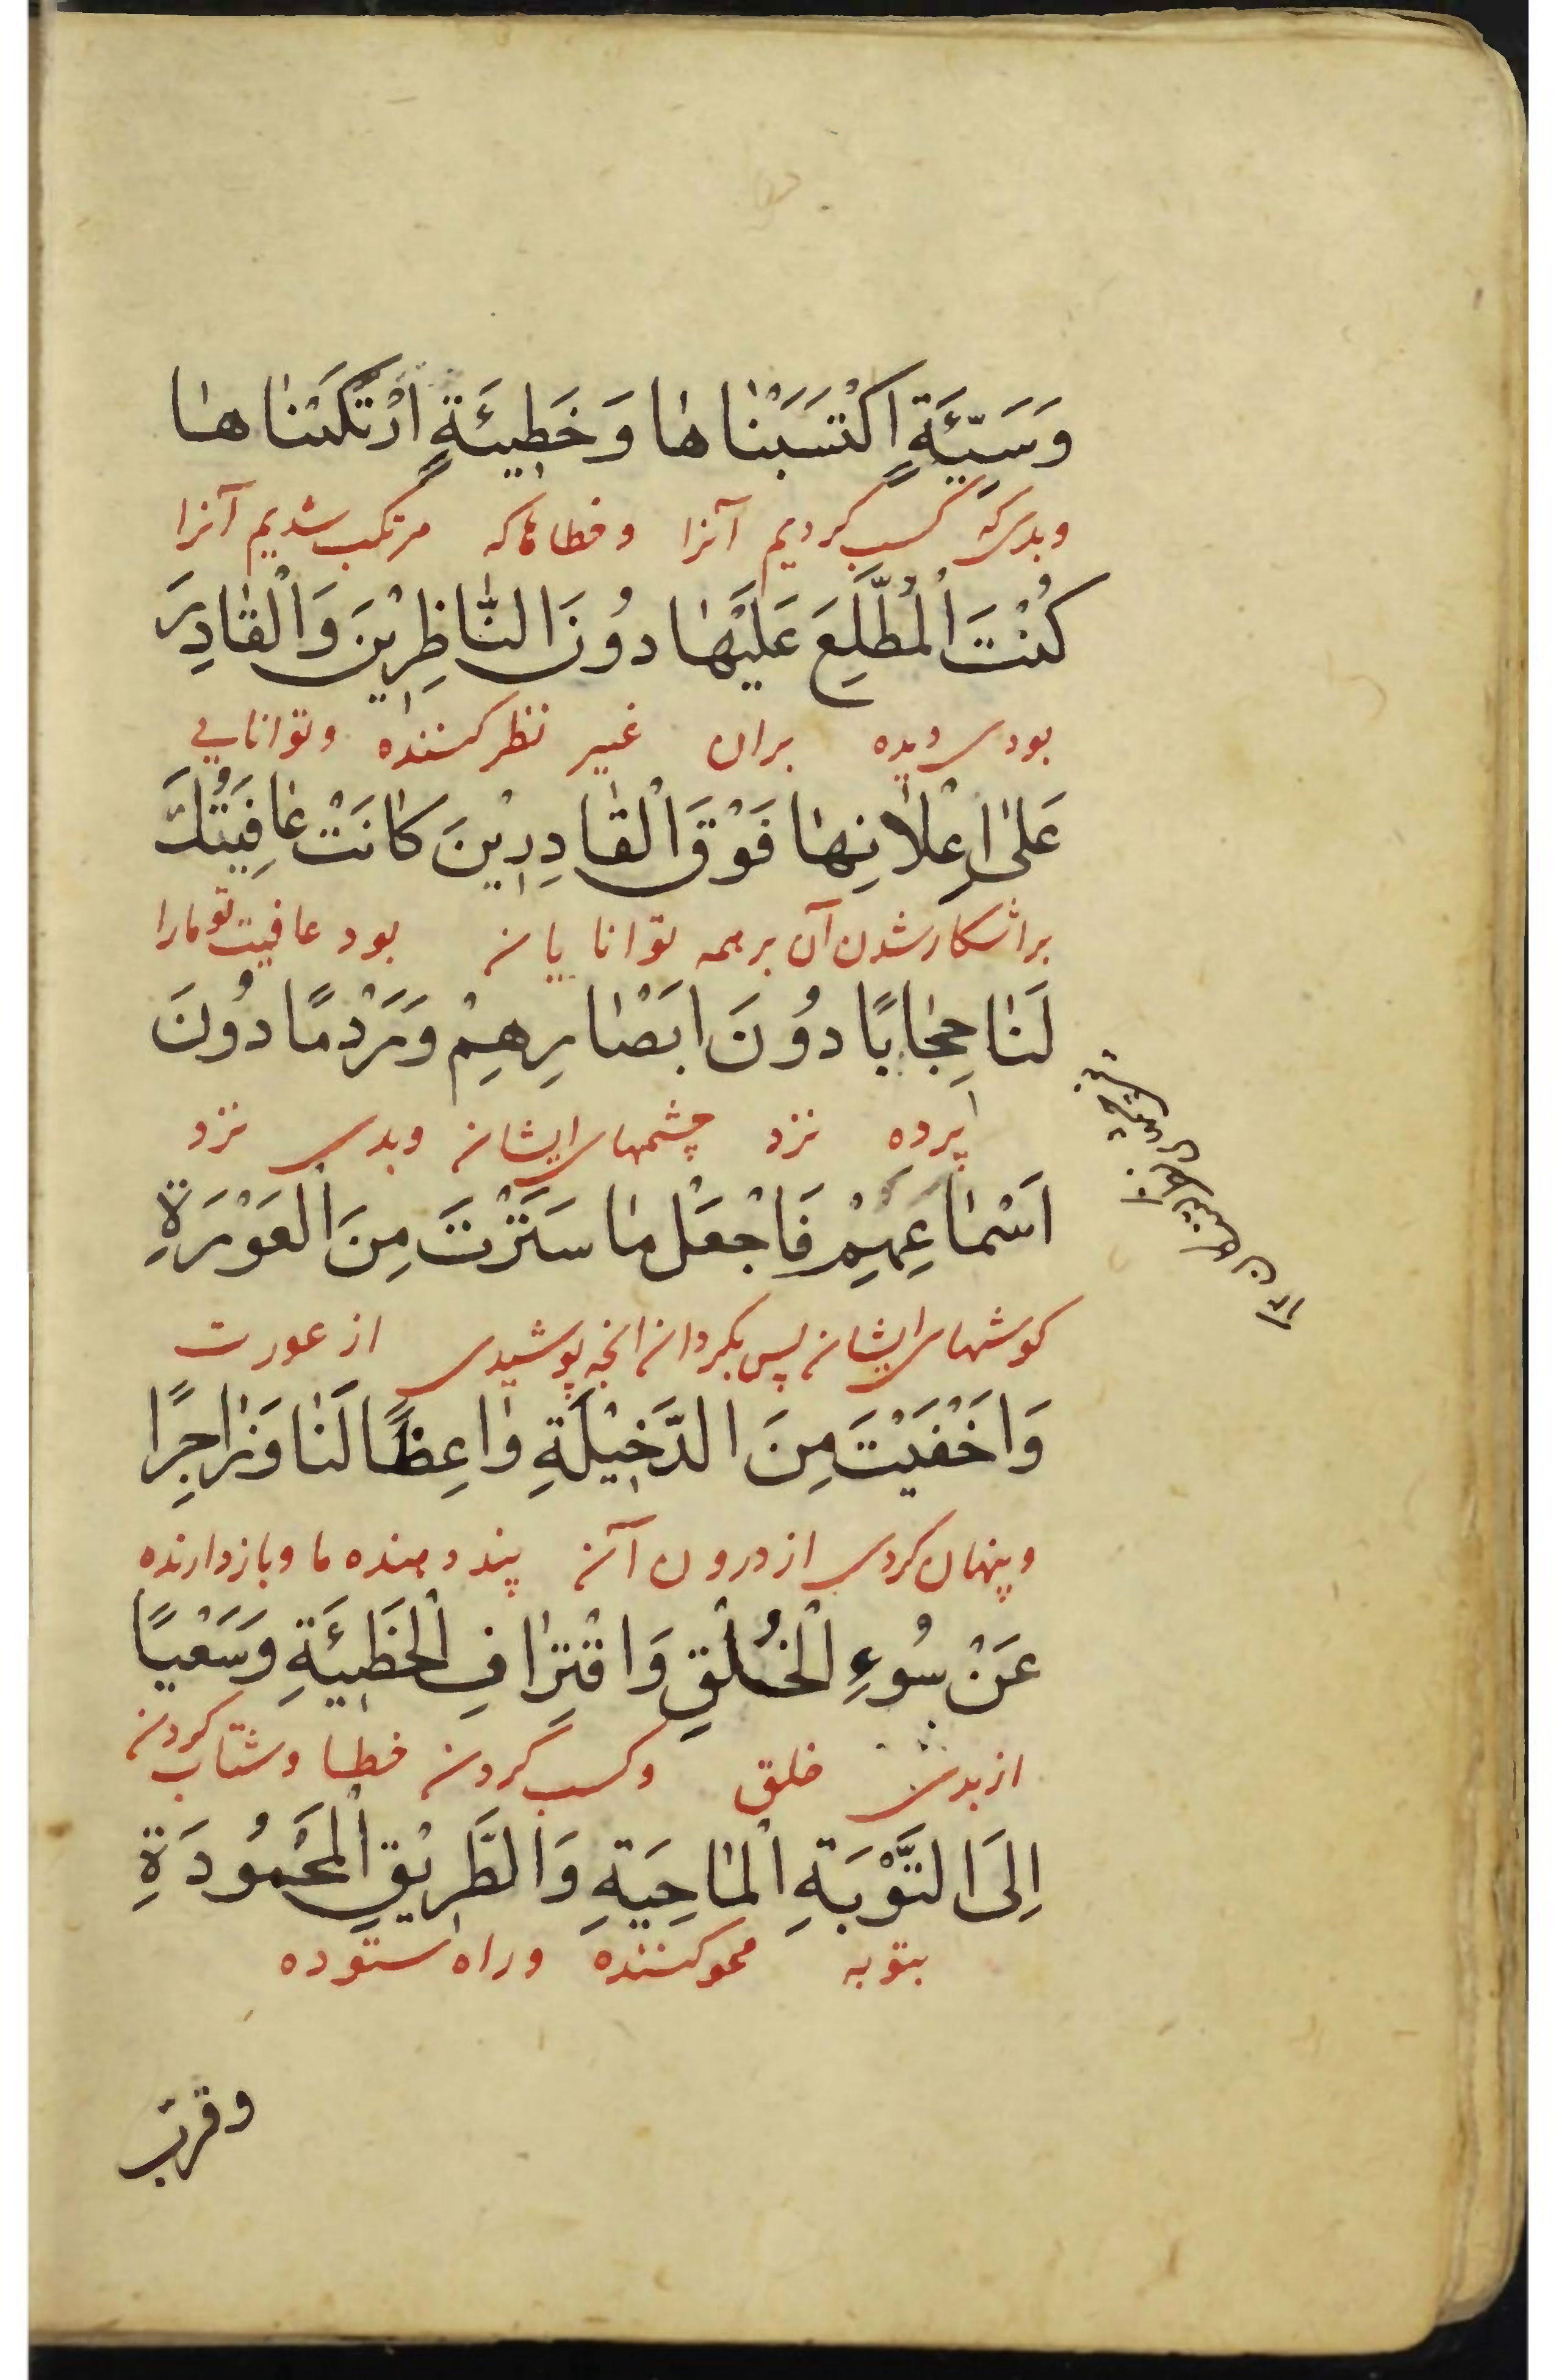 وَسَيِّئَةٍ اكْتَسَبْنَاهَا وَخَطِيئَةٍ ارْتَكَبْنَاهَا
وبدی که کسب کردیم آنرا وخطاها که مرتکب شدیم آنرا
كُنْتَ الْمُطَّلِعَ عَلَيْهَا دُونَ النَّاظِرِيْنَ وَالْقَادِرَ
بودی دیده بران غیر نظر کننده وتوانایی
عَلَى اِعْلَانِهَا فَوْقَ الْقَادِرِيْنَ كَانَتْ عَافِيَتُكَ
براشکار شدن آن برهمه توانایان بود عافیت تو مارا
لَنَا حِجَابًا دُونَ اَبْصَارِهِمْ وَرَدْمًا دُونَ
پرده نزد چشمهای ایشان وبدی نزد
اَسْمَاعِهِمْ فَاجْعَلْ مَا سَتَرْتَ مِنَ الْعَوْرَةِ
کوشهای ایشان پس بکردان انچه پوشیدی از عورت
وَاَخْفَيْتَ مِنَ الدَّخِيْلَةِ وَاعِظًا لَنَا وَزَاجِرًا
وپنهان کردی از درون آن پند دهنده ما وبازدارنده
عَنْ سُوءِ الْخُلْقِ وَاقْتِرَافِ الْخَطِيئَةِ وَسَعْيًا
از بدی خلق وکسب کردن خطا وشتاب کردن
اِلَى التَّوْبَةِ الْمَاحِيَةِ وَالطَّرِيْقِ الْمَحْمُودَةِ
بتوبه محو کننده وراه ستوده
وقرب